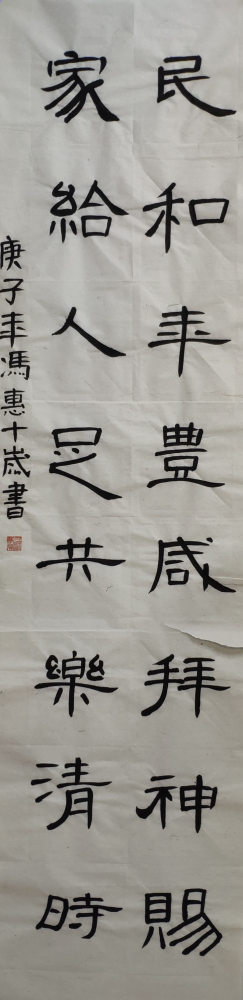 民和年豐咸拜神賜
家給人足共樂清時
庚子年馮惠十歲書